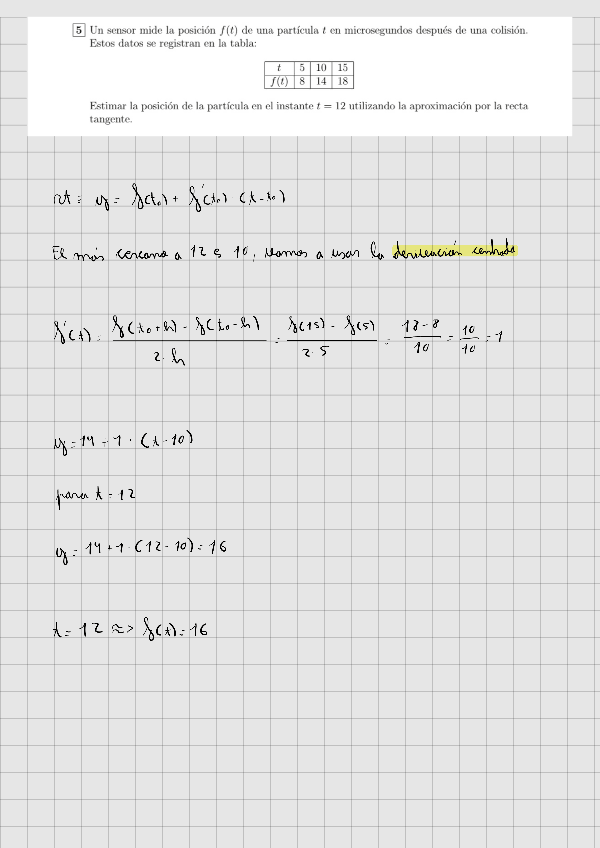 5 Un sensor mide la posición f(t) de una partícula t en microsegundos después de una colisión.
Estos datos se registran en la tabla:
t 5 10 15
f(t) 8 14 18
Estimar la posición de la partícula en el instante t = 12 utilizando la aproximación por la recta
tangente.
rt = y = f(t₀) + f'(t₀) (t - t₀)
El más cercano a 12 es 10, vamos a usar la derivación centrada
f'(t) = (f(t₀+h) - f(t₀-h)) / (2·h) = (f(15) - f(5)) / (2·5) = (18-8)/10 = 10/10 = 1
y = 14 + 1 · (t - 10)
para t = 12
y = 14 + 1 · (12 - 10) = 16
t = 12 ≈> f(t) = 16